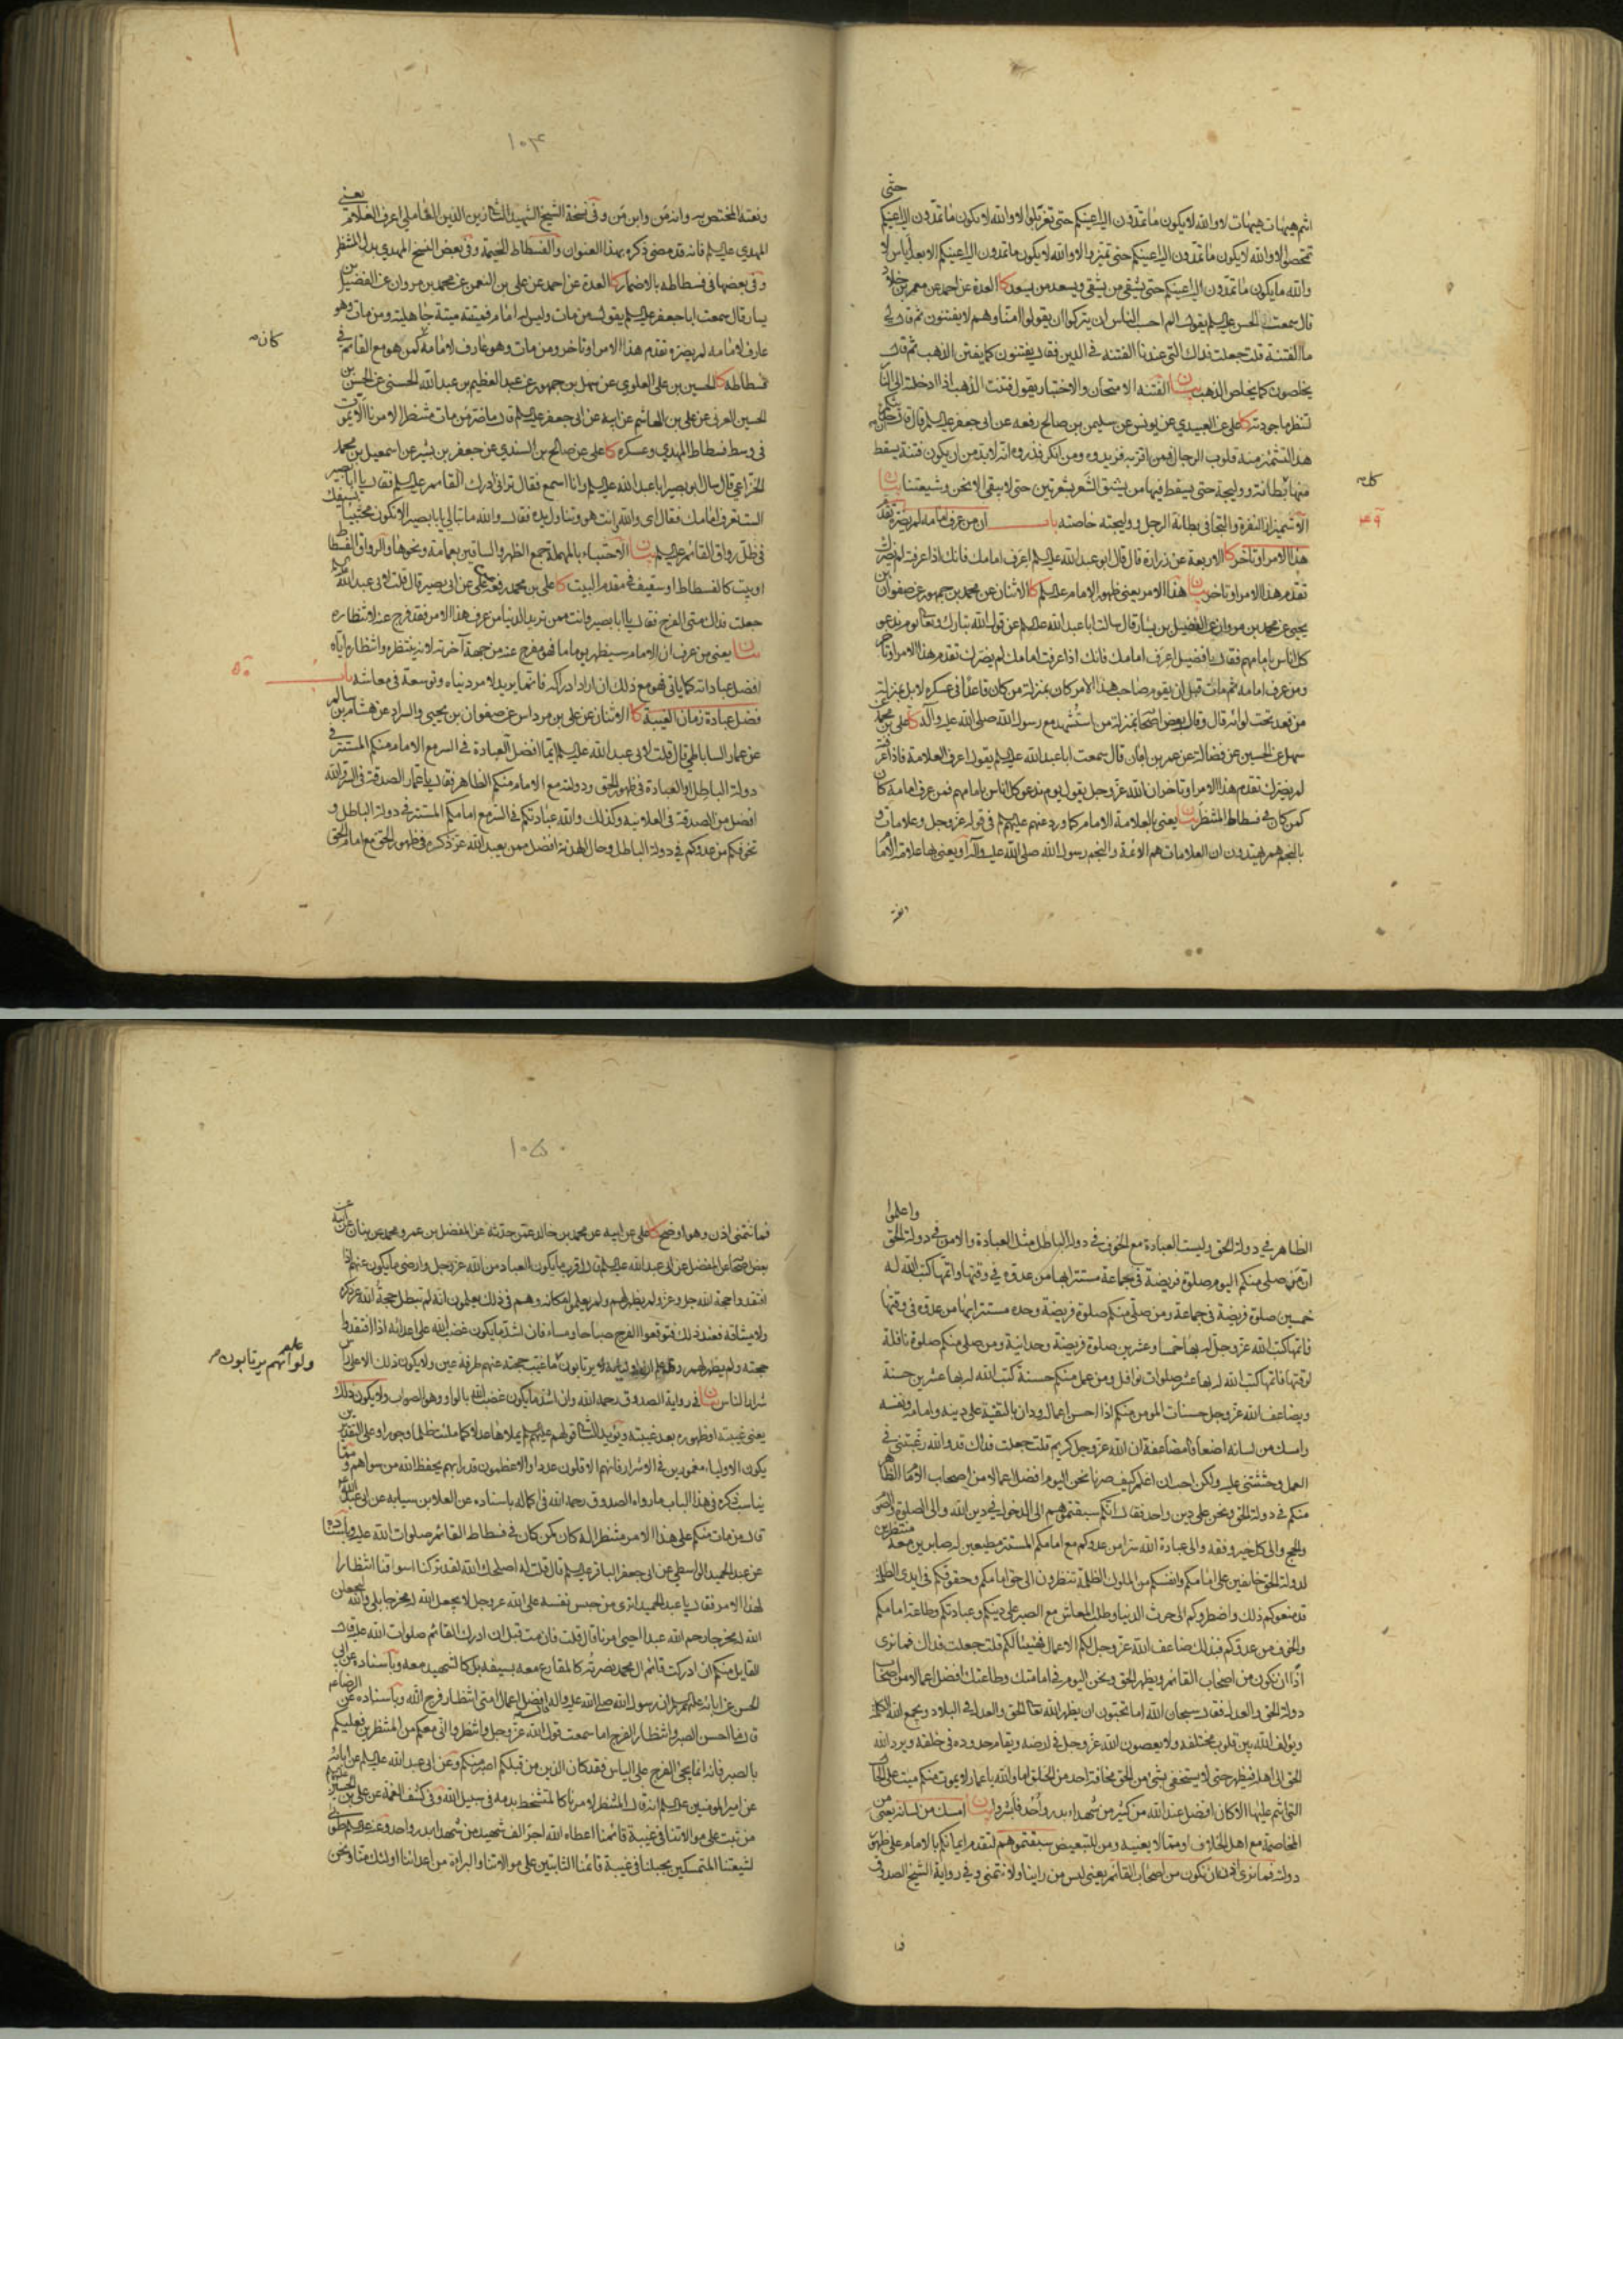 حتى
انتم هيهات هيهات لا والله لا يكون ما تمدون اليه اعينكم حتى تغربلوا لا والله لا يكون ما تمدون اليه اعينكم
تمحصوا لا والله لا يكون ما تمدون اليه اعينكم حتى تميزوا لا والله لا يكون ما تمدون اليه اعينكم الا بعد اياس لا
والله ما يكون ما تمدون اليه اعينكم حتى يشقى من يشقى ويسعد من يسعد كا العدة عن احمد عن معمر بن خلاد
قال سمعت ابا الحسن عليه السلم يقول الم احسب الناس ان يتركوا ان يقولوا امنا وهم لا يفتنون ثم قال لي
ما الفتنة قلت جعلت فداك الذي عندنا الفتنة في الدين فقال يفتنون كما يفتن الذهب ثم قال
يخلصون كما يخلص الذهب بيان الفتنة الامتحان والاختبار يقول فتنت الذهب اذا ادخلته الى النار
لتنظر ما جودته كا علي عن العبيدي عن يونس عن سليمن بن صالح رفعه عن ابي جعفر عليه السلم قال قال ان حديثكم
هذا لتشمئز منه قلوب الرجال فمن اقر به فزيدوه ومن انكر فذروه انه لا بد من ان يكون فتنة يسقط
منها كل بطانة ووليجة حتى يسقط فيها من يشق الشعر بشعرتين حتى لا يبقى الا نحن وشيعتنا بيان
الاشمئزاز النفرة والتجافي بطانة الرجل ووليجته خاصته باب ان من عرف امامه لم يضره تقدم
۴۹
هذا الامر او تأخر كا الاربعة عن زرارة قال قال ابو عبد الله عليه السلم اعرف امامك فانك اذا عرفت لم يضرك
تقدم هذا الامر او تاخر بيان هذا الامر يعني ظهور الامام عليه السلم كا الاثنان عن محمد بن جمهور عن صفوان بن
يحيى عن محمد بن مروان عن الفضيل بن يسار قال سالت ابا عبد الله عليه السلم عن قول الله تبارك وتعالى يوم ندعو
كل اناس بامامهم فقال يا فضيل اعرف امامك فانك اذا عرفت امامك لم يضرك تقدم هذا الامر او تاخر
ومن عرف امامه ثم مات قبل ان يقوم صاحب هذا الامر كان بمنزلة من كان قاعدا في عسكره لا بل بمنزلة
من قعد تحت لوائه قال وقال بعض اصحابه بمنزلة من استشهد مع رسول الله صلى الله عليه وآله كا علي بن محمد عن
سهل عن الحسين عن فضالة عن عمر بن ابان قال سمعت ابا عبد الله عليه السلم يقول اعرف العلامة فاذا عرفته
لم يضرك تقدم هذا الامر او تاخر ان الله عز وجل يقول يوم ندعو كل اناس بامامهم فمن عرف امامه كان
كمن كان في فسطاط المنتظر بيان يعني بالعلامة الامام كما ورد عنهم عليهم السلم في قوله عز وجل وعلامات و
بالنجم هم يهتدون ان العلامات هم الائمة والنجم رسول الله صلى الله عليه وآله او يعني بها علامة الامام
۱۰۴
ونعته المختص به وانه من وابن من وفي نسخة الشيخ الشهيد الثاني زين الدين العاملي اعرف الغلام يعني
المهدي عليه السلم فانه قد مضى ذكره بهذا العنوان والفسطاط الخيمة وفي بعض النسخ المهدي بدل المنتظر
وفي بعضها في فسطاطه بالاضمار كا العدة عن احمد عن علي بن النعمن عن محمد بن مروان عن الفضيل بن
يسار قال سمعت ابا جعفر عليه السلم يقول من مات وليس له امام فميتته ميتة جاهلية ومن مات وهو
عارف لامامه لم يضره تقدم هذا الامر او تاخر ومن مات وهو عارف لامامه كان كمن هو مع القائم في
فسطاطه كا الحسين بن علي العلوي عن سهل بن جمهور عن عبد العظيم بن عبد الله الحسني عن الحسن بن
الحسين العرني عن علي بن هاشم عن ابيه عن ابي جعفر عليه السلم قال ما ضر من مات منتظرا لامرنا الا يموت
في وسط فسطاط المهدي وعسكره كا علي عن صالح بن السندي عن جعفر بن بشير عن اسمعيل بن محمد
الخزاعي قال سال ابو بصير ابا عبد الله عليه السلم وانا اسمع فقال تراني ادرك القائم عليه السلم فقال يا ابا بصير
الست تعرف امامك فقال اي والله وانت هو وتناول يده فقال والله ما تبالي يا ابا بصير الا تكون محتبيا بسيفك
في ظل رواق القائم عليه السلم بيان الاحتباء بالمهملة جمع الظهر والساقين بعمامة ونحوها والرواق الفسطاط
او بيت كالفسطاط او سقيف في مقدم البيت كا علي بن محمد رفعه عن علي عن ابي بصير قال قلت لابي عبد الله عليه السلم
جعلت فداك متى الفرج فقال يا ابا بصير وانت ممن تريد الدنيا من عرف هذا الامر فقد فرج عنه لانتظاره
بيان يعني من عرف ان الامام سيظهر يوما ما فهو مفرج عنه من جهة آخرته لانه ينتظره وانتظاره اياه
افضل عباداته كما ياتي فهو مع ذلك ان اراد ادراكه فانما يريد لامر دنياه وتوسعة في معاشه باب
۵۰
فضل عبادة زمان الغيبة كا الاثنان عن علي بن مرداس عن صفوان بن يحيى والسراد عن هشام بن سالم
عن عمار الساباطي قال قلت لابي عبد الله عليه السلم ايما افضل العبادة في السر مع الامام منكم المستتر في
دولة الباطل او العبادة في ظهور الحق ودولته مع الامام منكم الظاهر فقال يا عمار الصدقة في السر والله
افضل من الصدقة في العلانية وكذلك والله عبادتكم في السر مع امامكم المستتر في دولة الباطل و
تخوفكم من عدوكم في دولة الباطل وحال الهدنة افضل ممن يعبد الله عز ذكره في ظهور الحق مع امام الحق
واعلموا
الظاهر في دولة الحق وليست العبادة مع الخوف في دولة الباطل مثل العبادة والامن في دولة الحق
ان من صلى منكم اليوم صلوة فريضة في جماعة مستترا بها من عدوه في وقتها واتمها كتب الله له
خمسين صلوة فريضة في جماعة ومن صلى منكم صلوة فريضة وحده مستترا بها من عدوه في وقتها
فاتمها كتب الله عز وجل له بها خمسا وعشرين صلوة فريضة وحدانية ومن صلى منكم صلوة نافلة
لوقتها فاتمها كتب الله له بها عشر صلوات نوافل ومن عمل منكم حسنة كتب الله له بها عشرين حسنة
ويضاعف الله عز وجل حسنات المومن منكم اذا احسن اعماله ودان بالتقية على دينه وامامه ونفسه
وامسك من لسانه اضعافا مضاعفة ان الله عز وجل كريم قلت جعلت فداك قد والله رغبتني في
العمل وحثثتني عليه ولكن احب ان اعلم كيف صرنا نحن اليوم افضل اعمالا من اصحاب الامام الظاهر
منكم في دولة الحق ونحن على دين واحد فقال انكم سبقتموهم الى الدخول في دين الله والى الصلوة والصوم
والحج والى كل خير وفقه والى عبادة الله سرا من عدوكم مع امامكم المستتر مطيعين له صابرين معه منتظرين
لدولة الحق خائفين على امامكم وانفسكم من الملوك الظلمة تنظرون الى حق امامكم وحقوقكم في ايدي الظلمة
قد منعوكم ذلك واضطروكم الى حرث الدنيا وطلب المعاش مع الصبر على دينكم وعبادتكم وطاعة امامكم
والخوف من عدوكم فبذلك ضاعف الله عز وجل لكم الاعمال فهنيئا لكم قلت جعلت فداك فما نرى
اذا ان نكون من اصحاب القائم ويظهر الحق ونحن اليوم في امامتك وطاعتك افضل اعمالا من اصحاب
دولة الحق والعدل فقال سبحان الله اما تحبون ان يظهر الله تعالى الحق والعدل في البلاد ويجمع الله الكلمة
ويؤلف الله بين قلوب مختلفة ولا يعصون الله عز وجل في ارضه ويقام حدوده في خلقه ويرد الله
الحق الى اهله فيظهر حتى لا يستخفي بشيء من الحق مخافة احد من الخلق اما والله يا عمار لا يموت منكم ميت على الحال
التي انتم عليها الا كان افضل عند الله من كثير من شهداء بدر واحد فابشروا بيان امسك من لسانه يعني من
المخاصمة مع اهل الخلاف او مما لا يعنيه ومن للتبعيض سبقتموهم لتقدم ايمانكم بالامام على ظهور
دولته فما نرى اذن ان نكون من اصحاب القائم يعني ليس من راينا ولا نتمنى وفي رواية الشيخ الصدوق
فما
۱۰۵
فما نتمنى اذن وهو اوضح كا علي عن ابيه عن محمد بن خالد عمن حدثه عن المفضل بن عمر ومحمد عن بنان عن ابيه عن
بعض اصحابه عن المفضل عن ابي عبد الله عليه السلم قال اقرب ما يكون العباد من الله عز وجل وارضى ما يكون عنهم اذا
افتقدوا حجة الله جل وعز ولم يظهر لهم ولم يعلموا مكانه وهم في ذلك يعلمون انه لم تبطل حجة الله عز ذكره
ولا ميثاقه فعند ذلك فتوقعوا الفرج صباحا ومساء فان اشد ما يكون غضب الله على اعدائه اذا افتقدوا
حجته ولم يظهر لهم وقد علم ان اولياءه لا يرتابون ما غيب حجته عنهم طرفة عين ولا يكون ذلك الا على راس
ولو علم انهم يرتابون
شرار الناس بيان في رواية الصدوق رحمه الله وان اشد ما يكون غضب الله بالواو وهو الصواب ولا يكون ذلك
يعني غيبته او ظهوره بعد غيبته ويؤيد الثاني قولهم عليهم السلم يملاها عدلا كما ملئت ظلما وجورا وعلى التقديرين
يكون الاولياء مغمورين في الاشرار فانهم الاقلون عددا والاعظمون قدرا بهم يحفظ الله من سواهم ومما
يناسب ذكره في هذا الباب ما رواه الصدوق رحمه الله في كماله باسناده عن العلا بن سيابه عن ابي عبد الله عليه السلم
قال من مات منكم على هذا الامر منتظرا له كان كمن كان في فسطاط القائم صلوات الله عليه وباسناده
عن عبد الحميد الواسطي عن ابي جعفر الباقر عليه السلم قال قلت له اصلحك الله لقد تركنا اسواقنا انتظارا
لهذا الامر فقال يا عبد الحميد اترى من حبس نفسه على الله عز وجل لا يجعل الله له مخرجا بلى والله ليجعلن
الله له مخرجا رحم الله عبدا احيى امرنا قال قلت فان مت قبل ان ادرك القائم صلوات الله عليه قال
القايل منكم ان ادركت قائم ال محمد نصرته كالمقارع معه بسيفه بل كالشهيد معه وباسناده عن ابي
الحسن عن ابائه عليهم السلم ان رسول الله صلى الله عليه واله قال افضل اعمال امتي انتظار فرج الله وباسناده عن الرضا عليه السلم
قال ما احسن الصبر وانتظار الفرج اما سمعت قول الله عز وجل وانتظروا اني معكم من المنتظرين فعليكم
بالصبر فانه انما يجئ الفرج على الياس فقد كان الذين من قبلكم اصبر منكم وعن ابي عبد الله عليه السلم عن ابائه
عن امير المومنين عليه السلم انه قال المنتظر لامرنا كالمتشحط بدمه في سبيل الله وفي كشف الغمة عن علي بن الحسين عليهما السلم
من ثبت على موالاتنا في غيبة قائمنا اعطاه الله اجر الف شهيد من شهداء بدر واحد وعنه عليه السلم طوبى
لشيعتنا المتمسكين بحبلنا في غيبة قائمنا الثابتين على موالاتنا والبراءة من اعدائنا اولئك منا ونحن